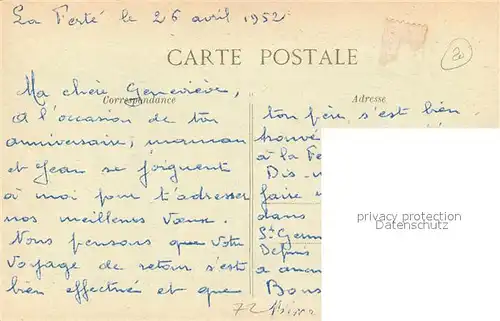 La Ferté le 26 avril 1952
20
CARTE POSTALE
Correspondance
Adresse
Ma chère Geneviève,
A l'occasion de ton
anniversaire, maman
et Jean se joignent
à moi pour t'adresser
nos meilleurs vœux.
Nous pensons que votre
voyage de retour s'est
bien effectué et que
ton père s'est bien
trouvé
à la Fe
Dis-
faire
dans
St Germ
Depuis
a
Bous
privacy protection
Datenschutz
72